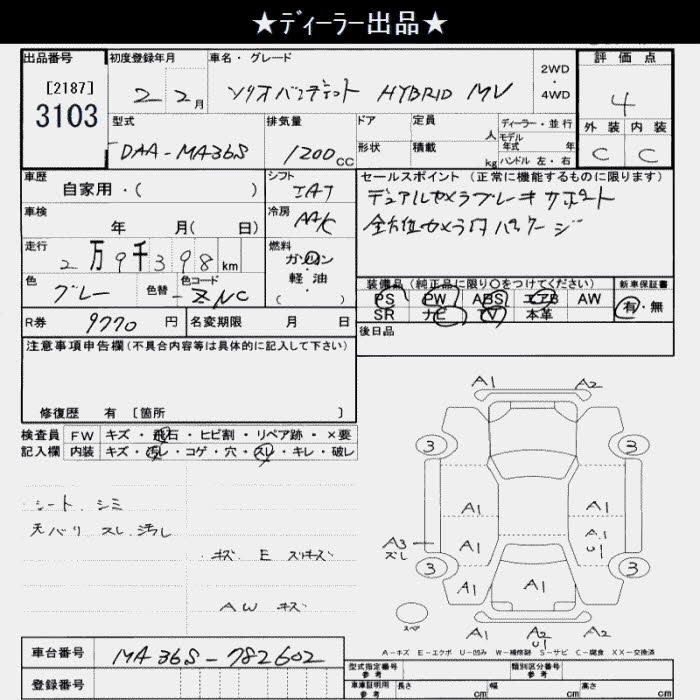 ★ディーラー出品★
出品番号 初度登録年月 車名・グレード 2WD・4WD 評価点
[2187]
3103
2 2月 ソリオバンディット HYBRID MV 4
型式 排気量 ドア 定員 人 ディーラー・並行 外装 内装
モデル年式 年式
DAA-MA36S 1200cc 形状 積載 kg ハンドル 左・右 C C
車歴 シフト セールスポイント (正常に機能するものに限ります)
自家用・( ) IAT デュアルカメラブレーキサポート
車検 冷房 全方位カメラ付パッケージ
年 月( 日) AAC
走行 燃料
2万9千398km ガソリン
軽・油
( )
色 色替 色コード 装備品 (純正品に限り〇をつけてください) 新車保証書
グレー - ZNC PS PW ABS エアB AW 有・無
R券 9770円 名変期限 月 日 SR ナビ TV 本革
注意事項申告欄(不具合内容等は具体的に記入して下さい) 後日品
修復歴 有 〔箇所 〕
検査員 FW キズ・飛石・ヒビ割・リペア跡・×要
記入欄 内装 キズ・汚レ・コゲ・穴・スレ・キレ・破レ
シート、シミ
天バリ スレ 汚レ
キズ E スリキズ
AW キズ
A1 A2
3 3
A1 A1
A3 A1 A1
ズレ U1
3 3
A1 A1
スペア
A1 A2 A1
U1
A－キズ E－エクボ U－凹み W－補修跡 S－サビ C－腐食 XX－交換済
車台番号 MA36S-782602
登録番号
型式指定番号 参考 類別区分番号 参考
車庫証明用 参考 長さ cm 幅 cm 高さ cm